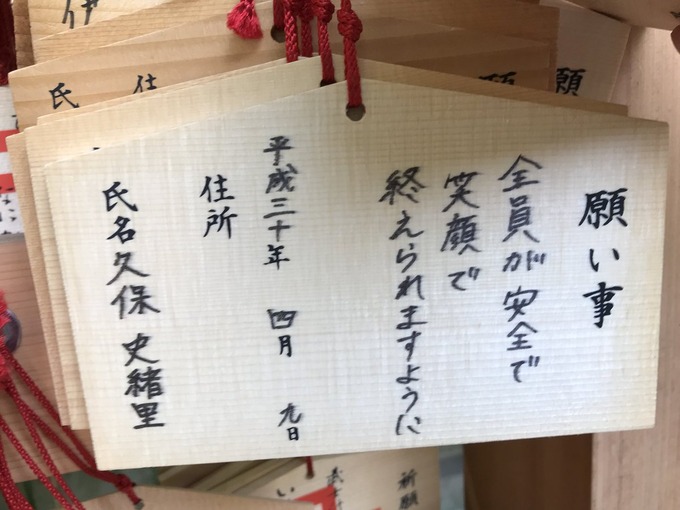 願い事
全員が安全で
笑顔で
終えられますように
平成三十年 四月 九日
住所
氏名久保 史緒里
願
願
住
氏
伊
祈願